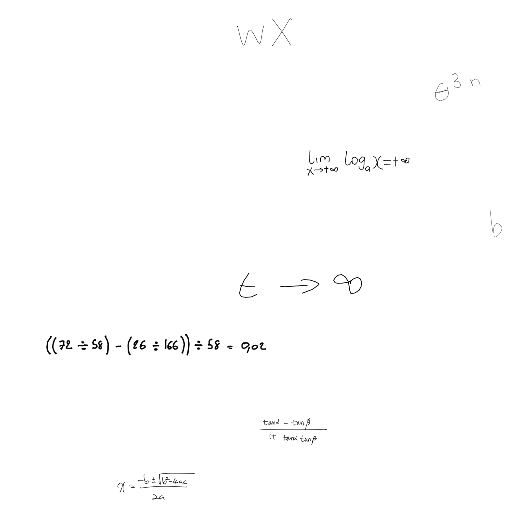 wX
θ³ⁿ
lim x→+∞ logₐ x = +∞
b
t → ∞
((72 ÷ 58) − (26 ÷ 166)) ÷ 58 = 0,02
(tanα − tanβ) / (1 + tanα tanβ)
x = (−b ± √(b²−4ac)) / 2a